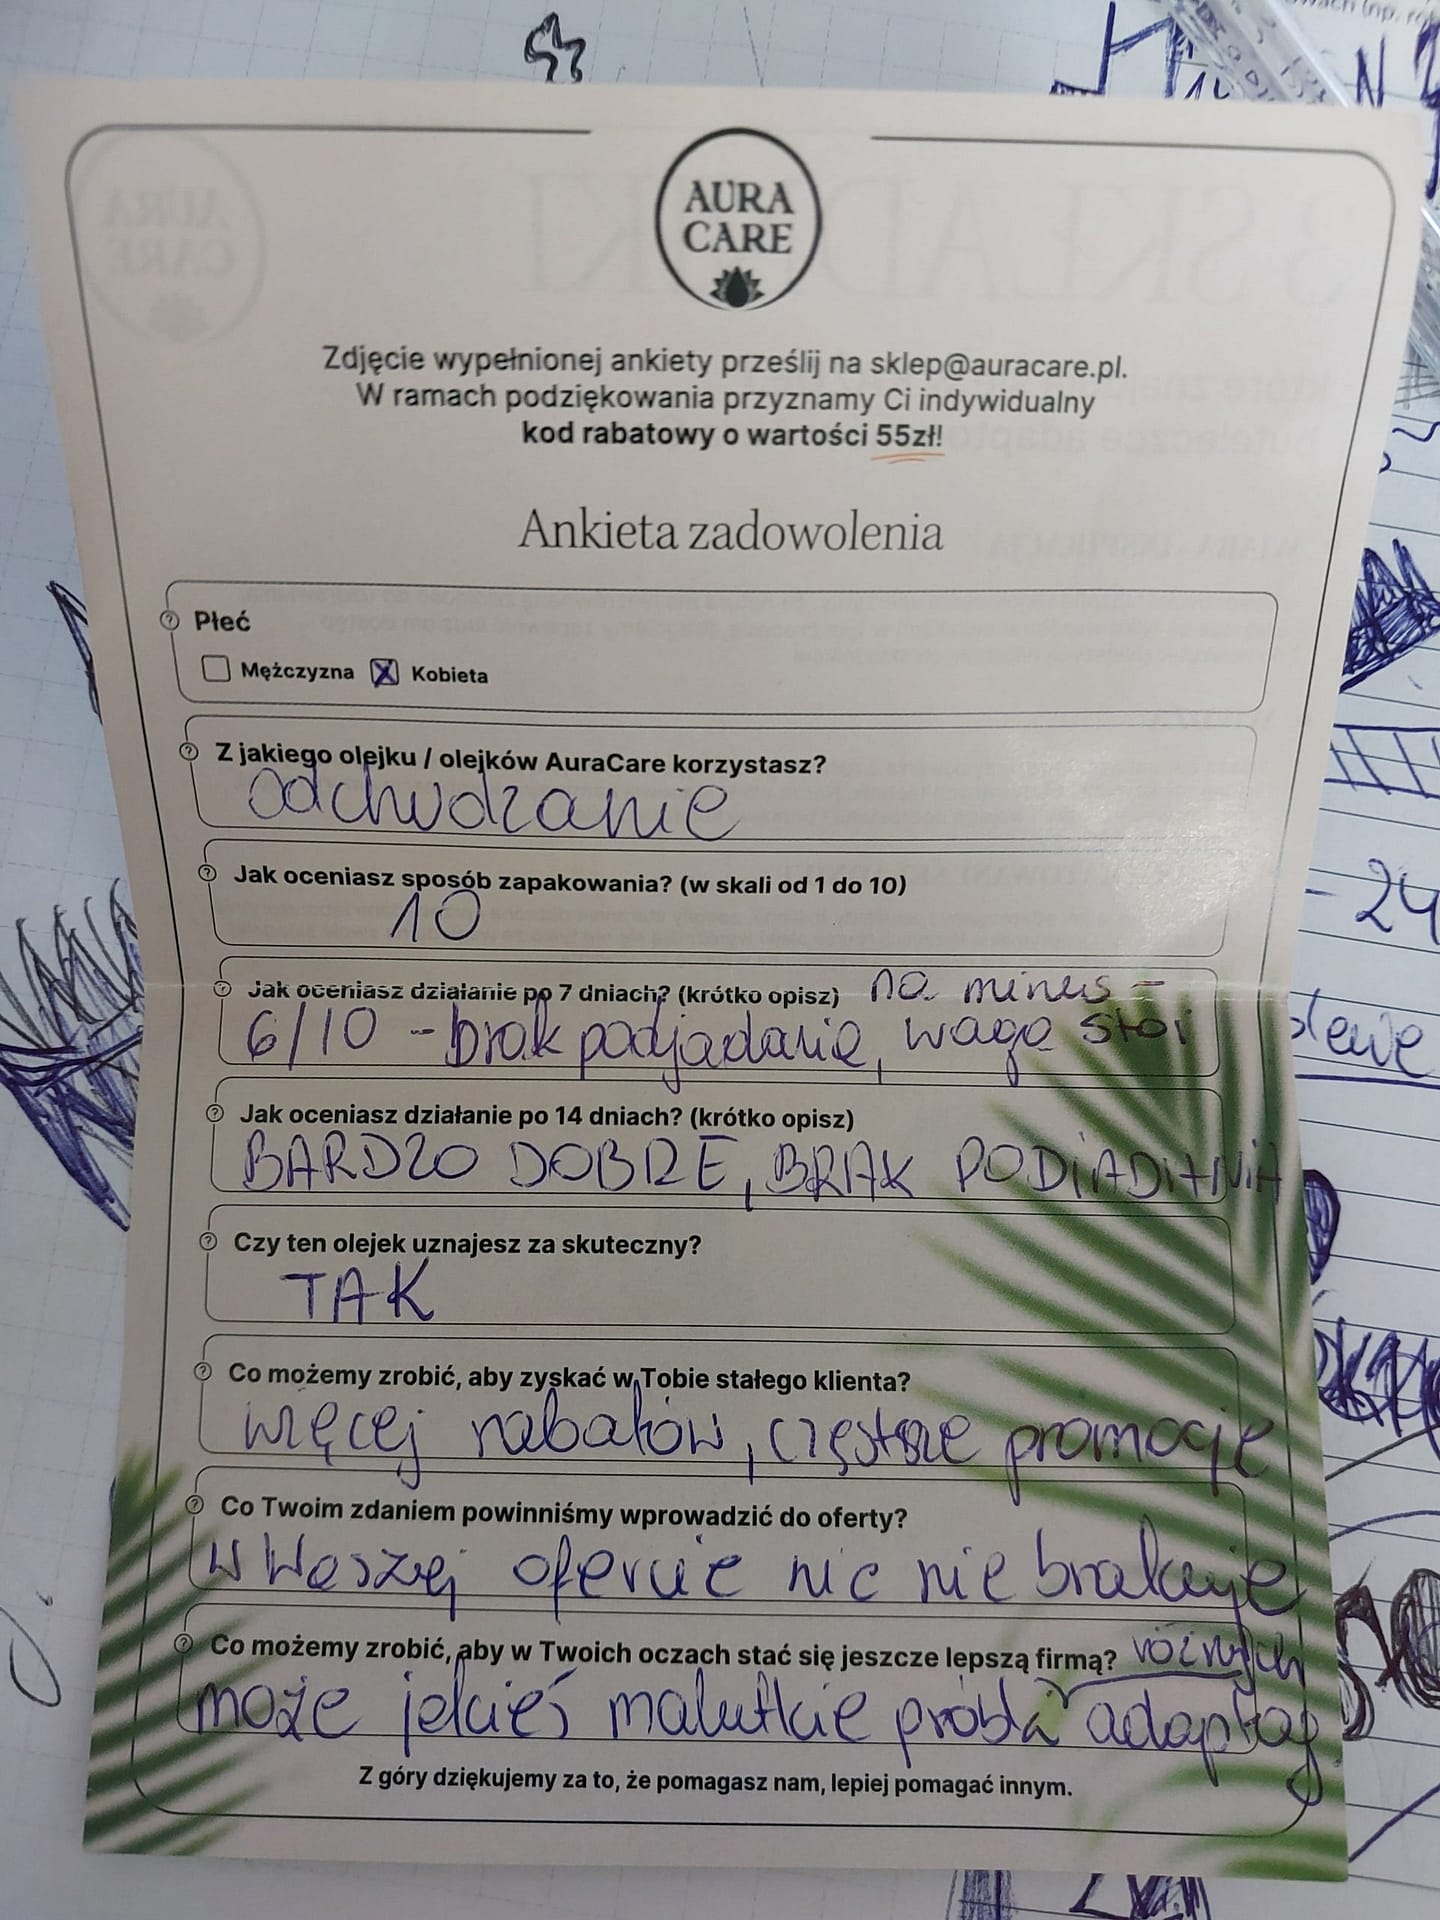 AURA
CARE
Zdjęcie wypełnionej ankiety prześlij na sklep@auracare.pl.
W ramach podziękowania przyznamy Ci indywidualny
kod rabatowy o wartości 55zł!
Ankieta zadowolenia
Płeć
Mężczyzna X Kobieta
Z jakiego olejku / olejków AuraCare korzystasz?
odchudzanie
Jak oceniasz sposób zapakowania? (w skali od 1 do 10)
10
Jak oceniasz działanie po 7 dniach? (krótko opisz) na minus -
6/10 - brak podjadania, waga stoi
Jak oceniasz działanie po 14 dniach? (krótko opisz)
BARDZO DOBRE, BRAK PODJADANIA
Czy ten olejek uznajesz za skuteczny?
TAK
Co możemy zrobić, aby zyskać w Tobie stałego klienta?
więcej rabatów, częstsze promocje
Co Twoim zdaniem powinniśmy wprowadzić do oferty?
w Waszej ofercie nic nie brakuje
Co możemy zrobić, aby w Twoich oczach stać się jeszcze lepszą firmą? różnych
może jakieś malutkie próbki
Z góry dziękujemy za to, że pomagasz nam, lepiej pomagać innym.
- 24